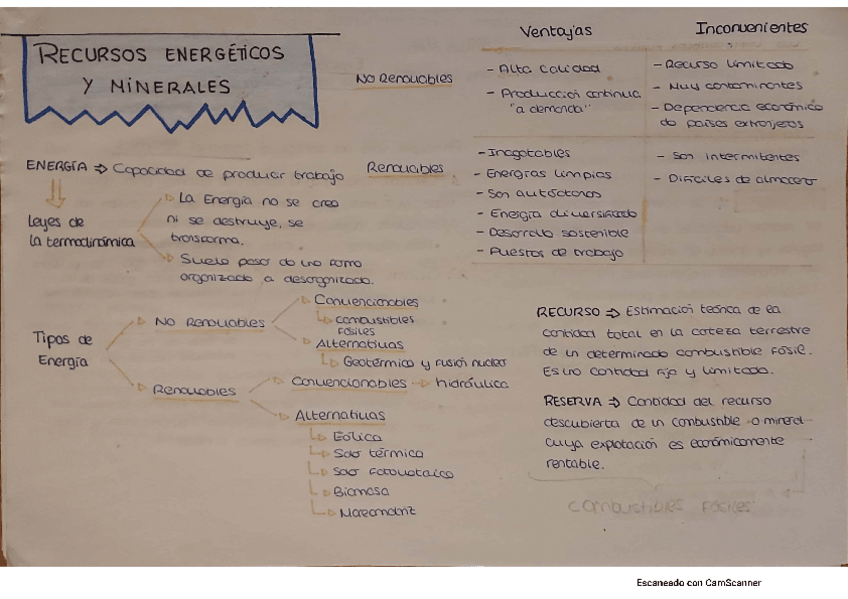 RECURSOS ENERGÉTICOS
Y MINERALES
Ventajas
Inconvenientes
No Renovables
- Alta calidad
- Producción continua
"a demanda"
- Recurso limitado
- Muy contaminantes
- Dependencia económica
de países extranjeros
Renovables
- Inagotables
- Energías limpias
- Son autóctonas
- Energía diversificada
- Desarrollo sostenible
- Puestos de trabajo
- Son intermitentes
- Difíciles de almacenar
ENERGÍA ⇒ Capacidad de producir trabajo
Leyes de
la termodinámica
La Energía no se crea
ni se destruye, se
transforma.
Suele pasar de una forma
organizada a desorganizada.
Tipos de
Energía
No Renovables
Convencionables
combustibles
fósiles
Alternativas
Geotérmica y fusión nuclear
Renovables
Convencionables → hidráulica
Alternativas
Eólica
Solar térmica
Solar fotovoltaica
Biomasa
Mareomotriz
RECURSO ⇒ Estimación teórica de la
cantidad total en la corteza terrestre
de un determinado combustible fósil.
Es una cantidad fija y limitada.
RESERVA ⇒ Cantidad del recurso
descubierta de un combustible o mineral
cuya explotación es económicamente
rentable.
combustibles fósiles
Escaneado con CamScanner